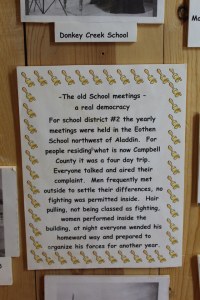 Donkey Creek School
Mo
-The old School meetings –
a real democracy
For school district #2 the yearly
meetings were held in the Eothen
School northwest of Aladdin. For
people residing what is now Campbell
County it was a four day trip.
Everyone talked and aired their
complaint. Men frequently met
outside to settle their differences, no
fighting was permitted inside. Hair
pulling, not being classed as fighting,
women performed inside the
building, at night everyone wended his
homeward way and prepared to
organize his forces for another year.